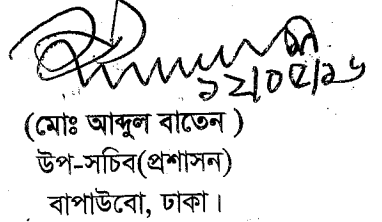 ১২/০৫/১৬
(মোঃ আব্দুল বাতেন )
উপ-সচিব(প্রশাসন)
বাপাউবো, ঢাকা।